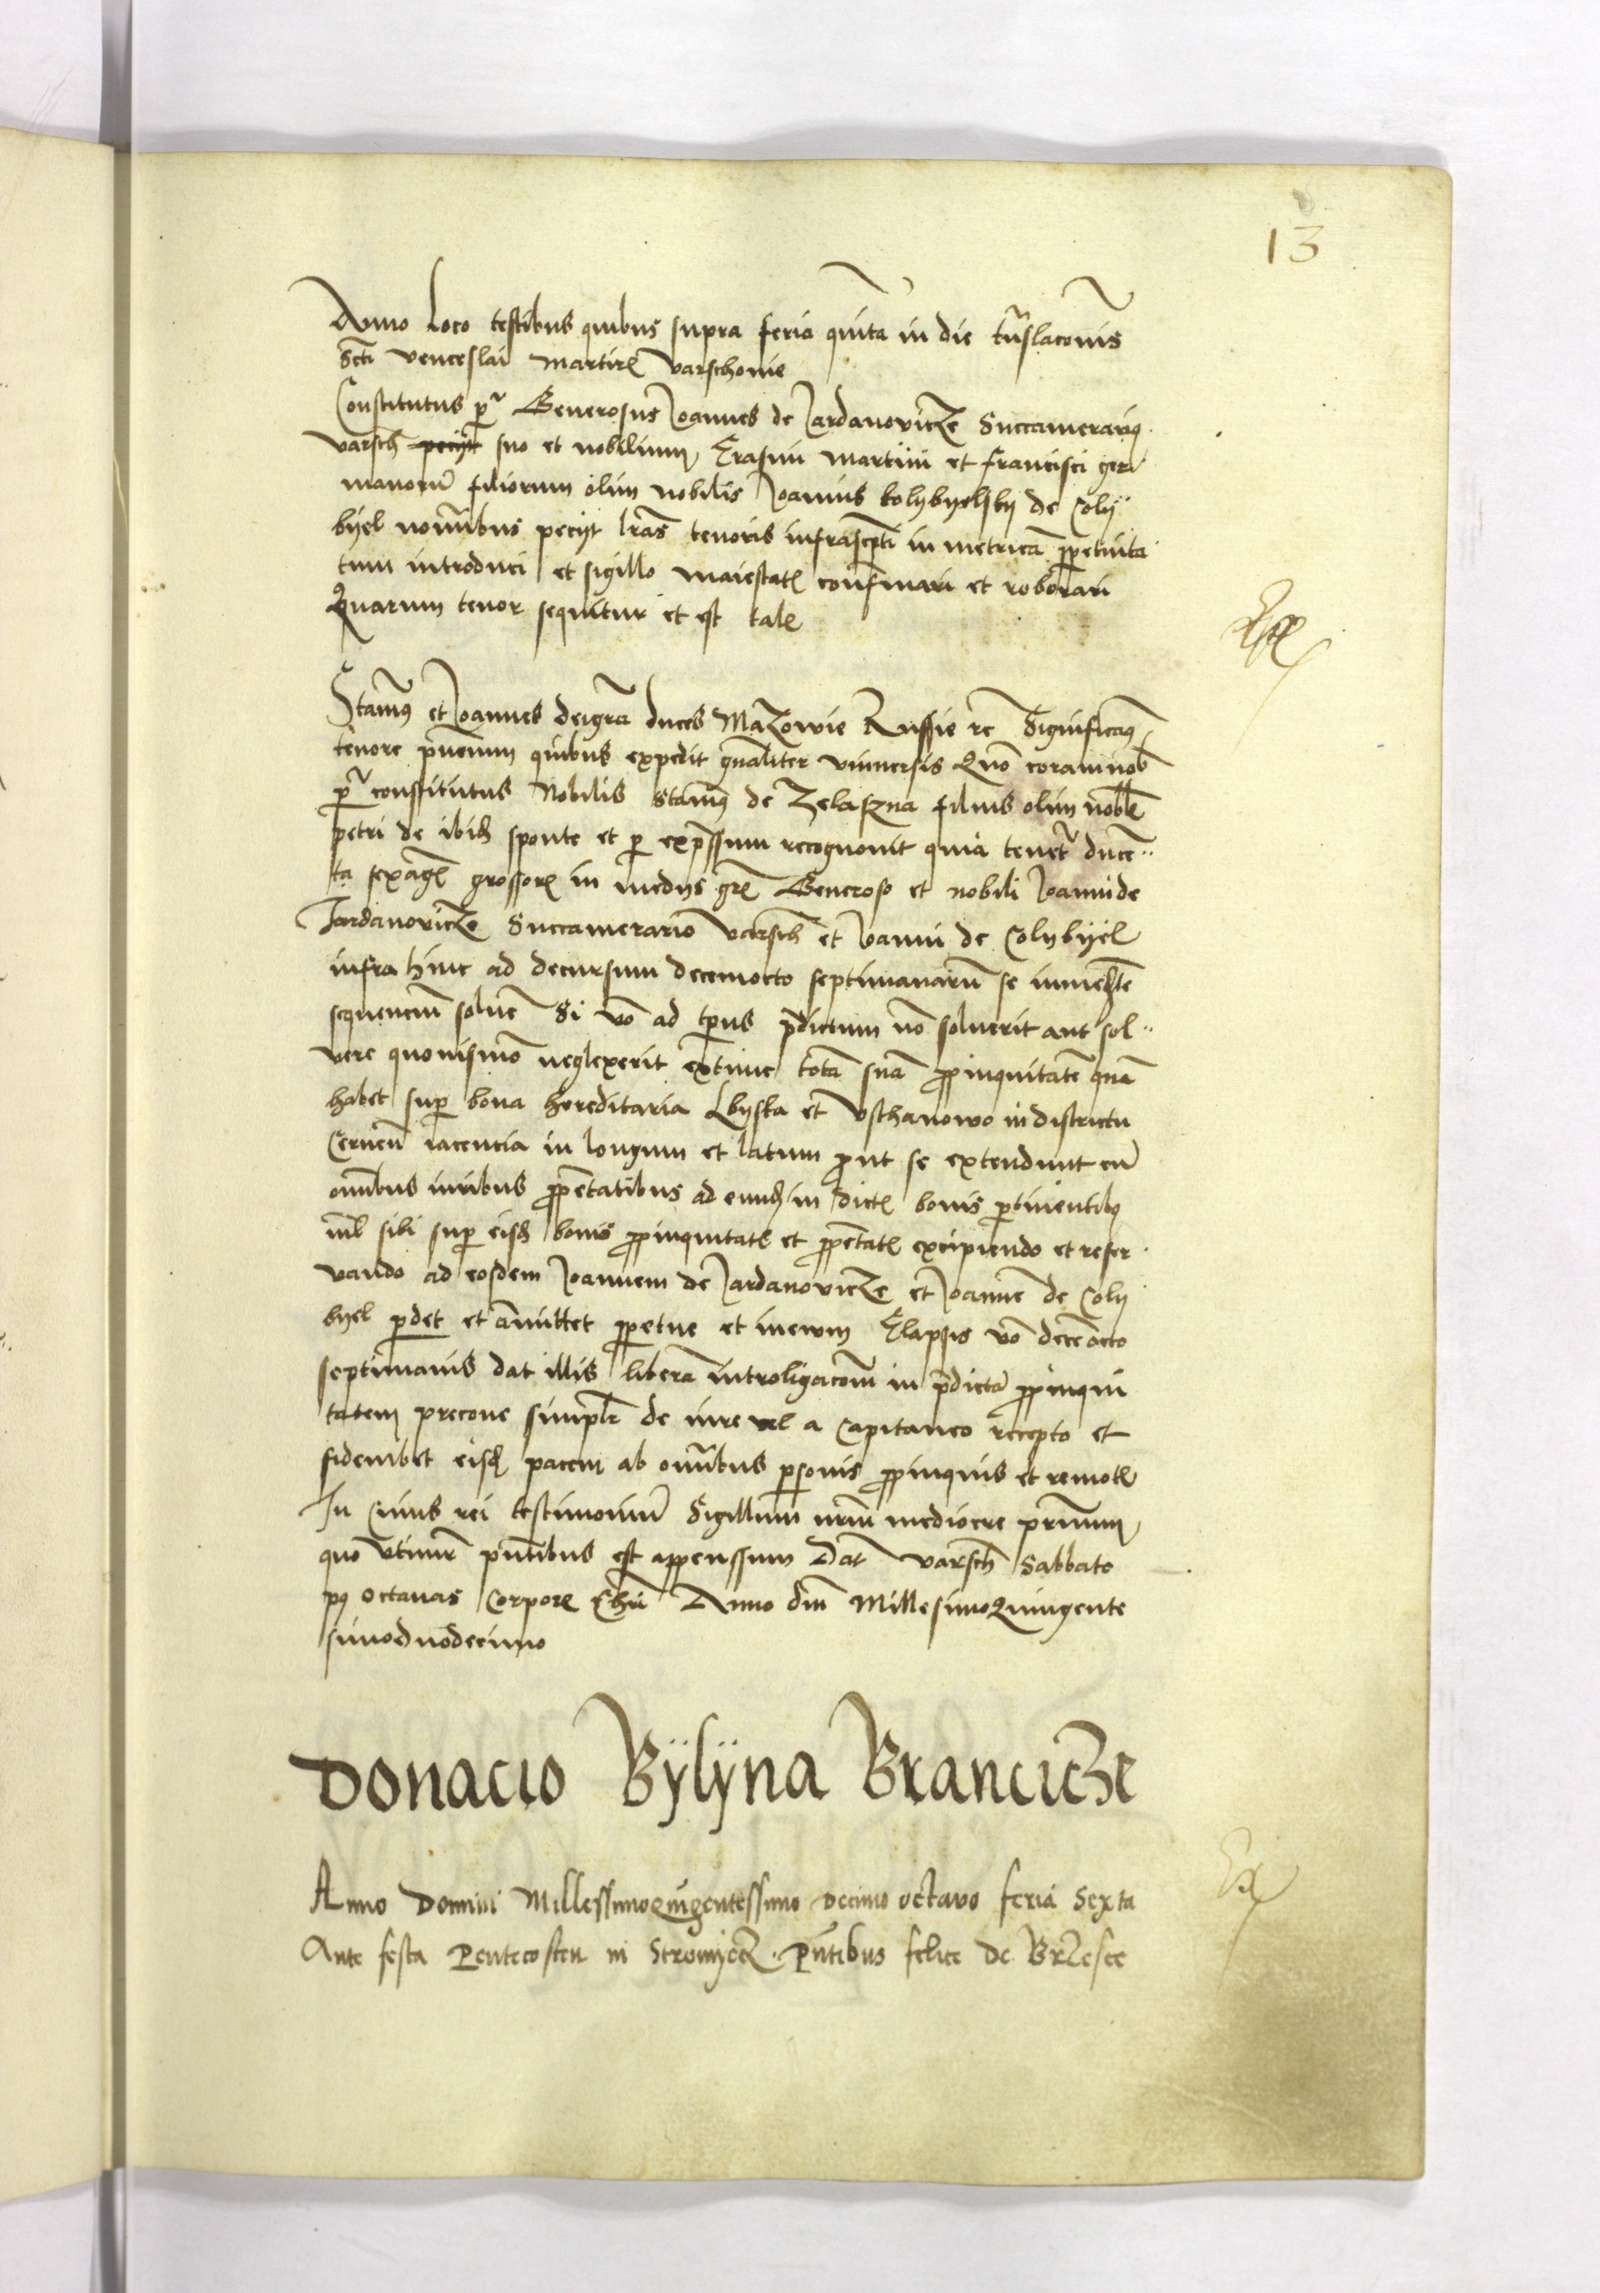 13
Anno loco testibus quibus supra feria quinta in die tr̃slacionis
Scti venceslai martirꝭ varschovie
Constitutus pr̃ Generosus Joannes de Jardanovicze Succamerariꝰ
varsch̃ peciit suo et nobilium Erasmi martini et francisci ger
manorũ filiorum olim nobilis Joannis kolybyelsky de Coly
byel noĩbus peciit lrãs tenoris infrascpti in metricã ꝑpetuita
tum introduci et sigillo maiestatꝭ confirmari et roborari
Quarum tenor sequitur et est talꝭ
Ex
Stanꝰ et Joannes dei grã duces Mazowie Russie rc̃ Significamꝰ
tenore pñcium quibus expedit gnãliter universis Quõ coram nob̃
pr̃ constitutus Nobilis Stanꝰ de Zelaszna filius olim nobĩl
petri de ibid̃ sponte et per expssum recognovit quia tenetr̃ ducẽ
ta sexagꝭ grossorꝭ in mediis grꝭ Generoso et nobili Joanni de
Jardanovicze Succamerario varsch̃ et Joanni de Colybyel
infra hinc ad decursum decemocto septimanarũ se immediatẽ
sequenciũ solvẽ Si võ ad tp̃us p̃dictum nõ solverit aut sol
vere quovismõ neglexerit extunc totã suã ꝓpinquitatẽ quã
habet sup̃ bona hereditaria Lbyska et Vschanowo in districtu
Cernen̄ iacencia in longum et latum ꝓut se extendunt cũ
omĩbus iuribus ꝓpetatibus ad eund̃ in dictꝭ bonis ꝑtinentibꝰ
nil sibi sup̃ eisd̃ bonis ꝓpinquitatꝭ et ꝓpetatꝭ excipiendo et reser
vando ad eosdem Joannem de Jardanovicze et Joannẽ de Coly
byel ꝑdet et amittet ꝑpetue et in ewm Elapsis võ decẽocto
septimanis dat illis liberã introligacionẽ in p̃dictã ꝓpinqui
tatem precone simplr̃ de iure vel a Capitaneo recepto et
fideiubet eisd̃ pacem ab omĩbus ꝑsonis ꝓpinquis et remotꝭ
In Cuius rei testimoniũ Sigillum nrũm mediocre
quo utimur pñtibus est appenssum Dat̃ varsch̃ Sabbato
pꝰ octavas Corporꝭ Chri Anno dni MillesimoQuingente
simoduodecimo
Donacio Bÿlÿna Brancicze
Ex
Anno Domini MillessimoQuĩgentessimo decimo octavo feria Sexta
Ante festa Pentecosten in Stromyecz pñtibus felice de Brzesce